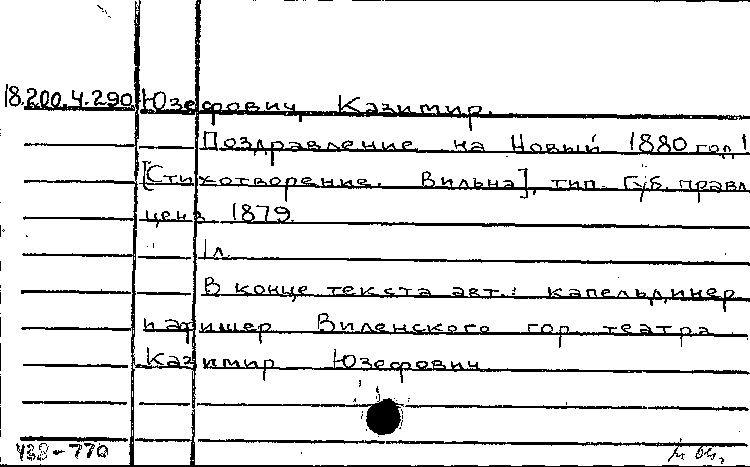 18.200.4.290 Юзефович, Казимир.
Поздравление на Новый 1880 год!
[Стихотворение. Вильна], тип. Губ. правл.
ценз. 1879.
1 л.
В конце текста авт.: капельдинер
и афишер Виленского гор. театра
Казимир Юзефович.
438-770